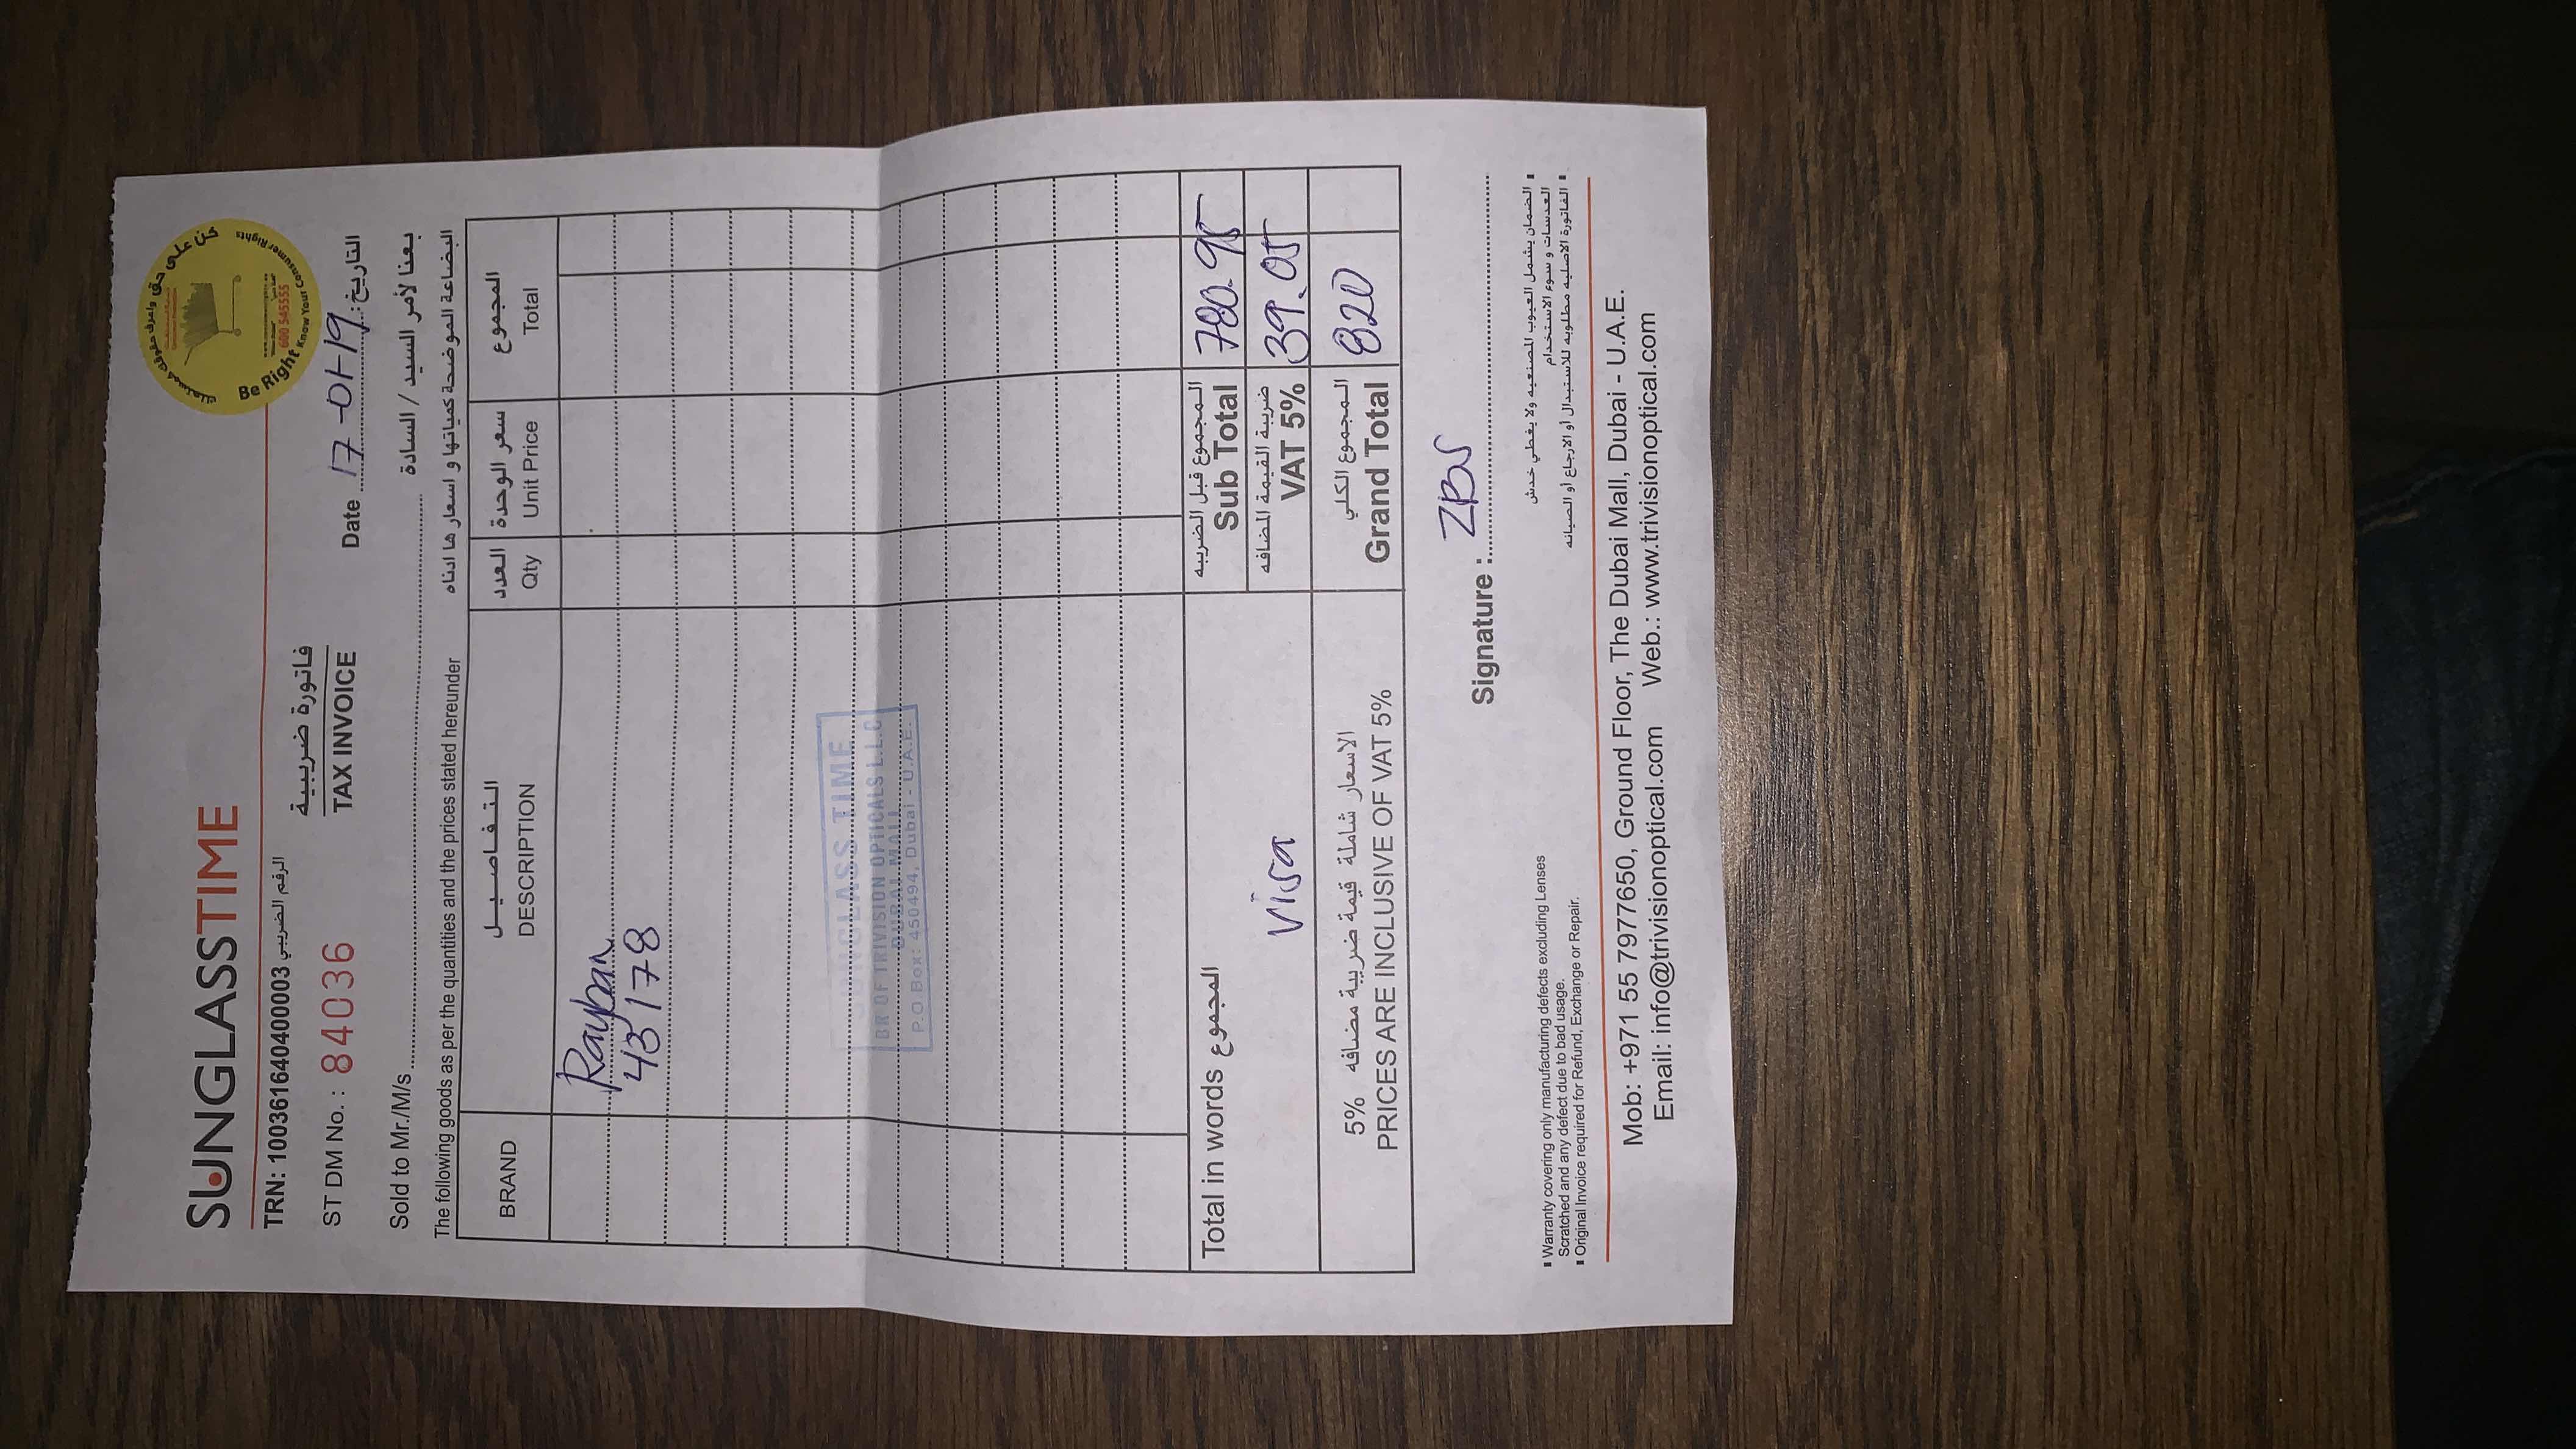 SUNGLASSTIME
كن على حق واعرف حقوقك كمستهلك
Be Right Know Your Consumer Rights
600 545555
TRN: 100361640400003 الرقم الضريبي
فاتورة ضريبية
TAX INVOICE
ST DM No. : 84036
Date 17-01-19 التاريخ:
Sold to Mr./M/s بعنا لأمر السيد / السادة
The following goods as per the quantities and the prices stated hereunder البضاعة الموضحة كمياتها و اسعار ها ادناه
BRAND
التفاصيل
DESCRIPTION
العدد
Qty
سعر الوحدة
Unit Price
المجموع
Total
Rayban
43178
SUNGLASS TIME
BR OF TRIVISION OPTICALS L.L.C
DUBAI MALL
P.O.Box: 450494, Dubai - U.A.E.
Total in words المجموع
visa
المجموع قبل الضريبه
Sub Total 780.95
ضريبة القيمة المضافه
VAT 5% 39.05
الاسعار شاملة قيمة ضريبة مضافه 5%
PRICES ARE INCLUSIVE OF VAT 5%
المجموع الكلي
Grand Total 820
Signature : ZBS
Warranty covering only manufacturing defects excluding Lenses
Scratched and any defect due to bad usage.
Original Invoice required for Refund, Exchange or Repair.
الضمان يشمل العيوب المصنعيه ولا يغطي خدش
العدسات و سوء الاستخدام
الفاتورة الاصليه مطلوبه للاستبدال أو الارجاع أو الصيانه
Mob: +971 55 7977650, Ground Floor, The Dubai Mall, Dubai - U.A.E.
Email: info@trivisionoptical.com Web.: www.trivisionoptical.com